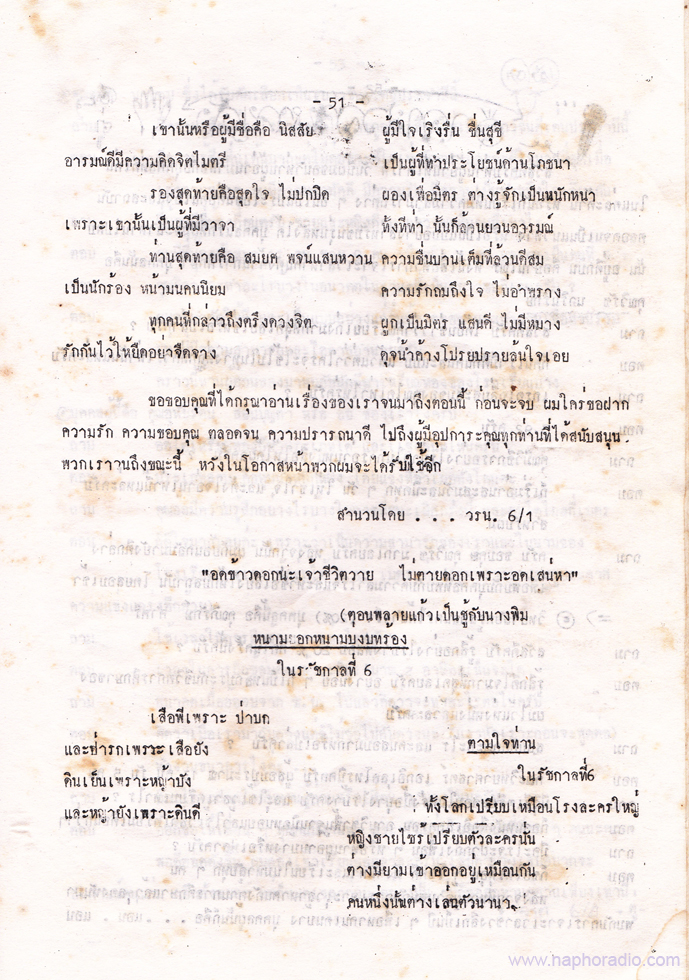 - 51 -
เขานั้นหรือผู้มีชื่อคือ นิสสัย ผู้มีใจเริงรื่น ชื่นสุขี
อารมณ์ดีมีความคิดจิตไมตรี เป็นผู้ที่ทำประโยชน์ด้านโภชนา
รองสุดท้ายคือสุดใจ ไม่ปกปิด ผองเพื่อมิตร ต่างรู้จักเป็นหนักหนา
เพราะเขานั้นเป็นผู้ที่มีวาจา ทั้งทีท่า นั้นก็ล้วนยวนอารมณ์
ท่านสุดท้ายคือ สมยศ พจน์แสนหวาน ความชื่นบานเต็มที่ล้วนดีสม
เป็นนักร้อง หน้ามนคนนิยม ความรักถมถึงใจ ไม่อำพราง
ทุกคนที่กล่าวถึงตรึงดวงจิต ผูกเป็นมิตร แสนดี ไม่มีหมาง
รักกันไว้ให้ยืดอย่าจืดจาง ดุจน้ำค้างโปรยปรายล้นใจเอย
ขอขอบคุณที่ได้กรุณาอ่านเรื่องของเราจนมาถึงตอนนี้ ก่อนจะจบ ผมใคร่ขอฝาก
ความรัก ความขอบคุณ ตลอดจน ความปรารถนาดี ไปถึงผู้มีอุปการะคุณทุกท่านที่ได้สนับสนุน
พวกเรานถึงขณะนี้ หวังในโอกาสหน้าพวกผมจะได้รับใช้อีก
สำนวนโดย . . . วรน. 6/1
"อดข้าวดอกนะเจ้าชีวิตวาย ไม่ตายดอกเพราะอดเสน่หา"
(ตอนพลายแก้วเป็นชู้กับนางพิม
หนามยอกหนามบ่งบทร้อง
ในรัชกาลที่ 6
เสือพีเพราะ ป่าปก
และป่ารกเพราะ เสือยัง
ดินเย็นเพราะหญ้าบัง
และหญ้ายังเพราะดินดี
ตามใจท่าน
ในรัชกาลที่6
ทั้งโลกเปรียบเหมือนโรงละครใหญ่
หญิงชายไซร้เปรียบตัวละครนั่น
ต่างมียามเข้าออกอยู่เหมือนกัน
คนหนึ่งนั้นต่างเล่นตัวนานา
www.haphoradio.com